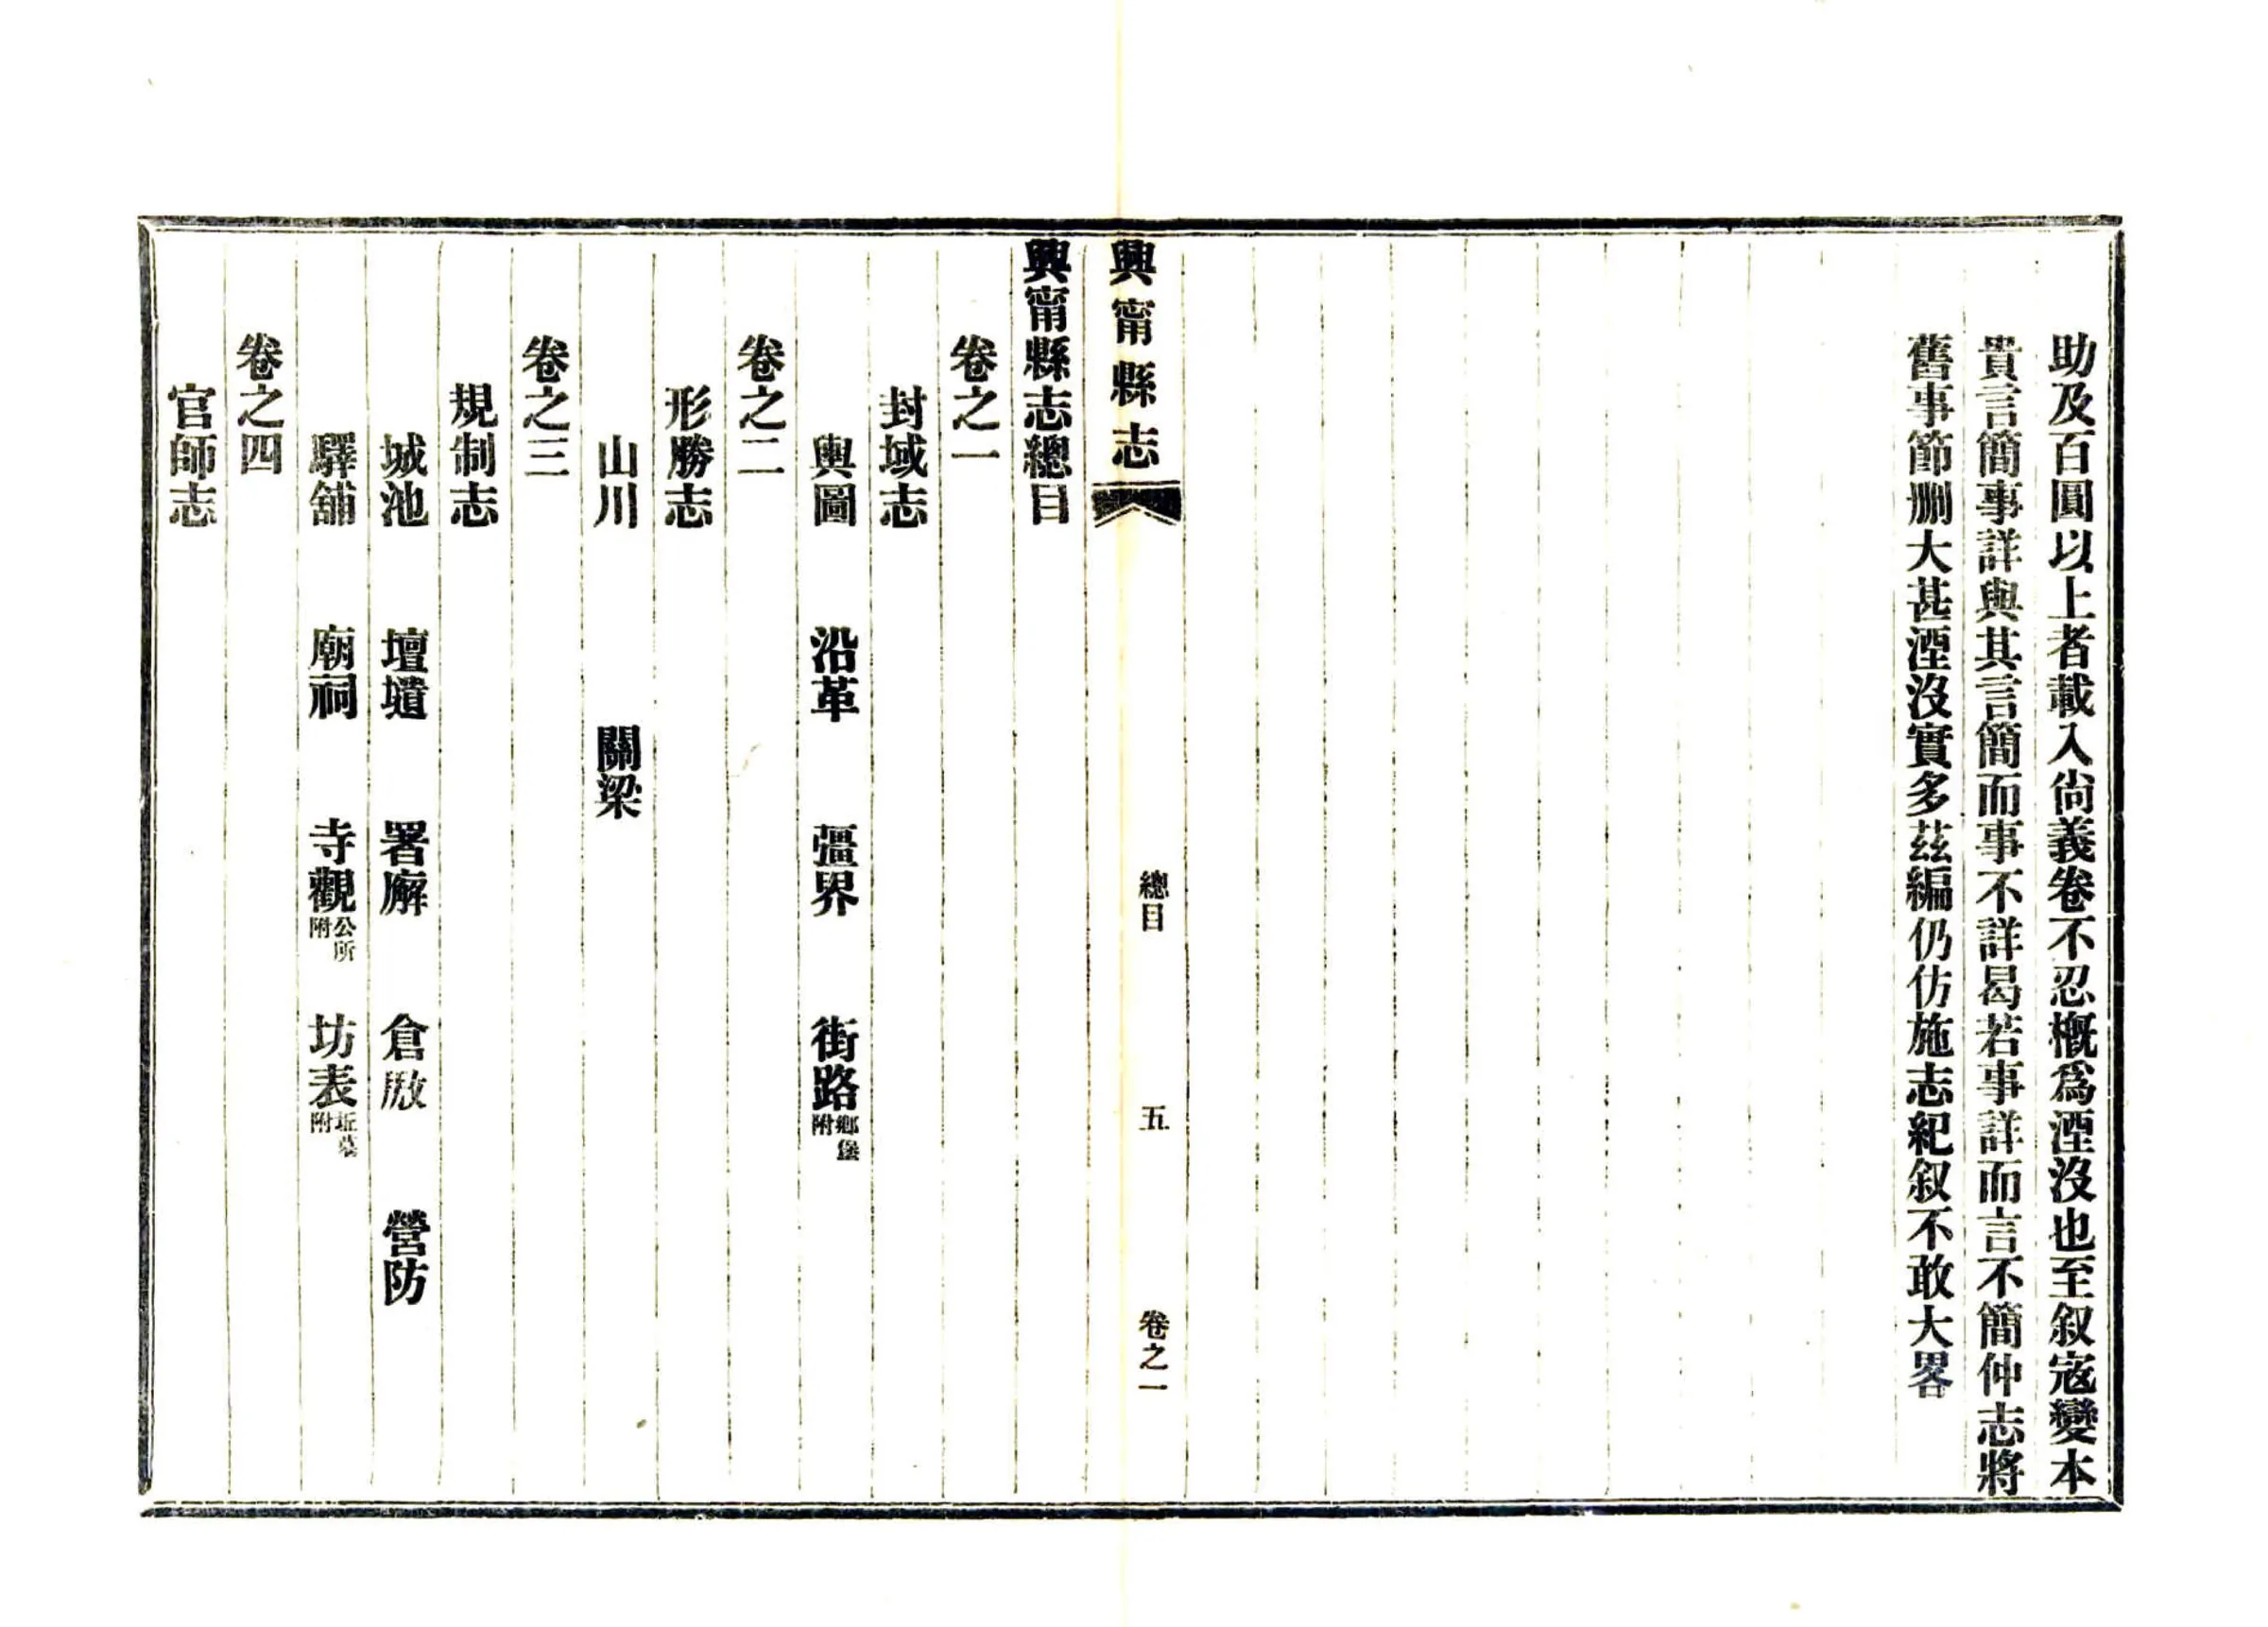 助及百圓以上者載入尙義卷不忍槪爲湮沒也至叙寇變本
貴言簡事詳與其言簡而事不詳曷若事詳而言不簡仲志將
舊事節刪大甚湮沒實多茲編仍仿施志紀叙不敢大畧
興甯縣志
總目
五
卷之一
興甯縣志總目
卷之一
封域志
輿圖 沿革 疆界 街路鄉堡附
卷之二
形勝志
山川 關梁
卷之三
規制志
城池 壇壝 署廨 倉廒 營防
驛舖 廟祠 寺觀公所附 坊表坵墓附
卷之四
官師志